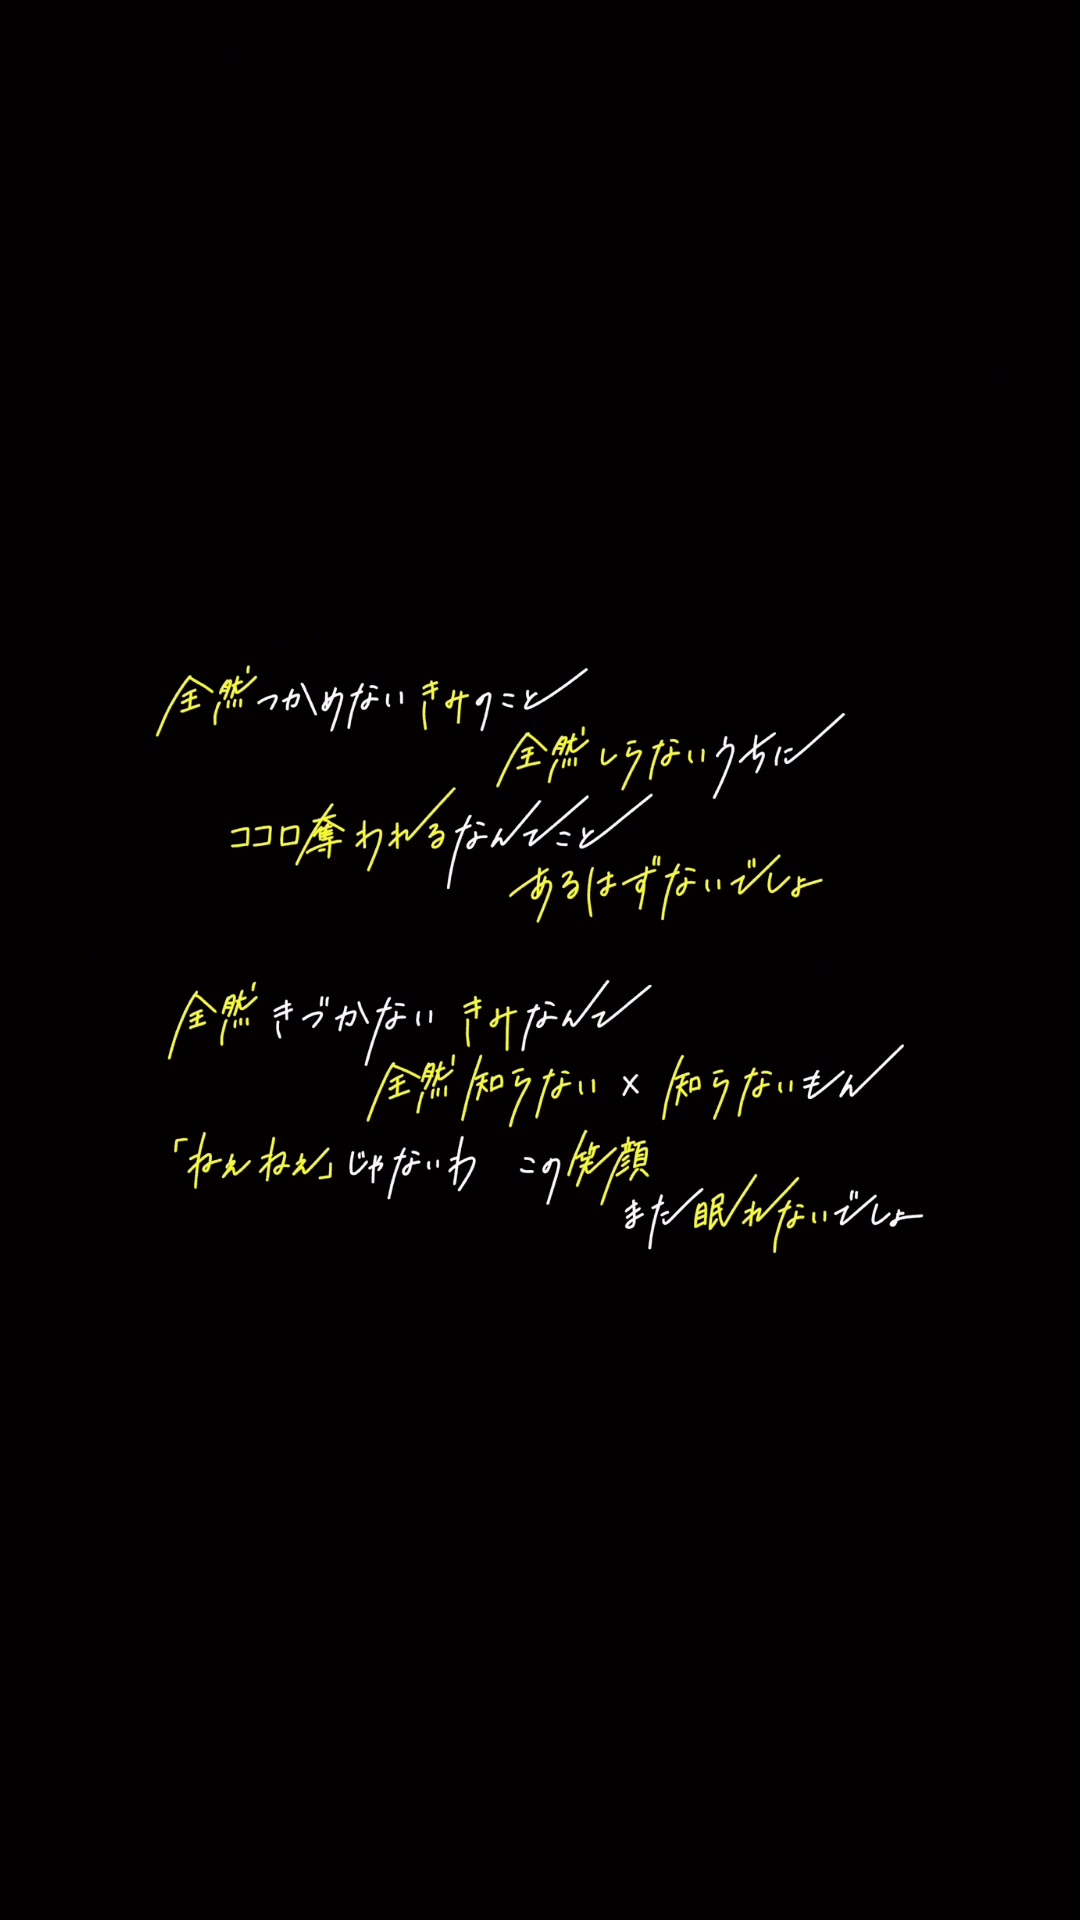 全然つかめないきみのこと
全然しらないうちに
ココロ奪われるなんてこと
あるはずないでしょ
全然きづかない きみなんて
全然知らない×知らないもん
「ねぇねぇ」じゃないわ この笑顔
また眠れないでしょ